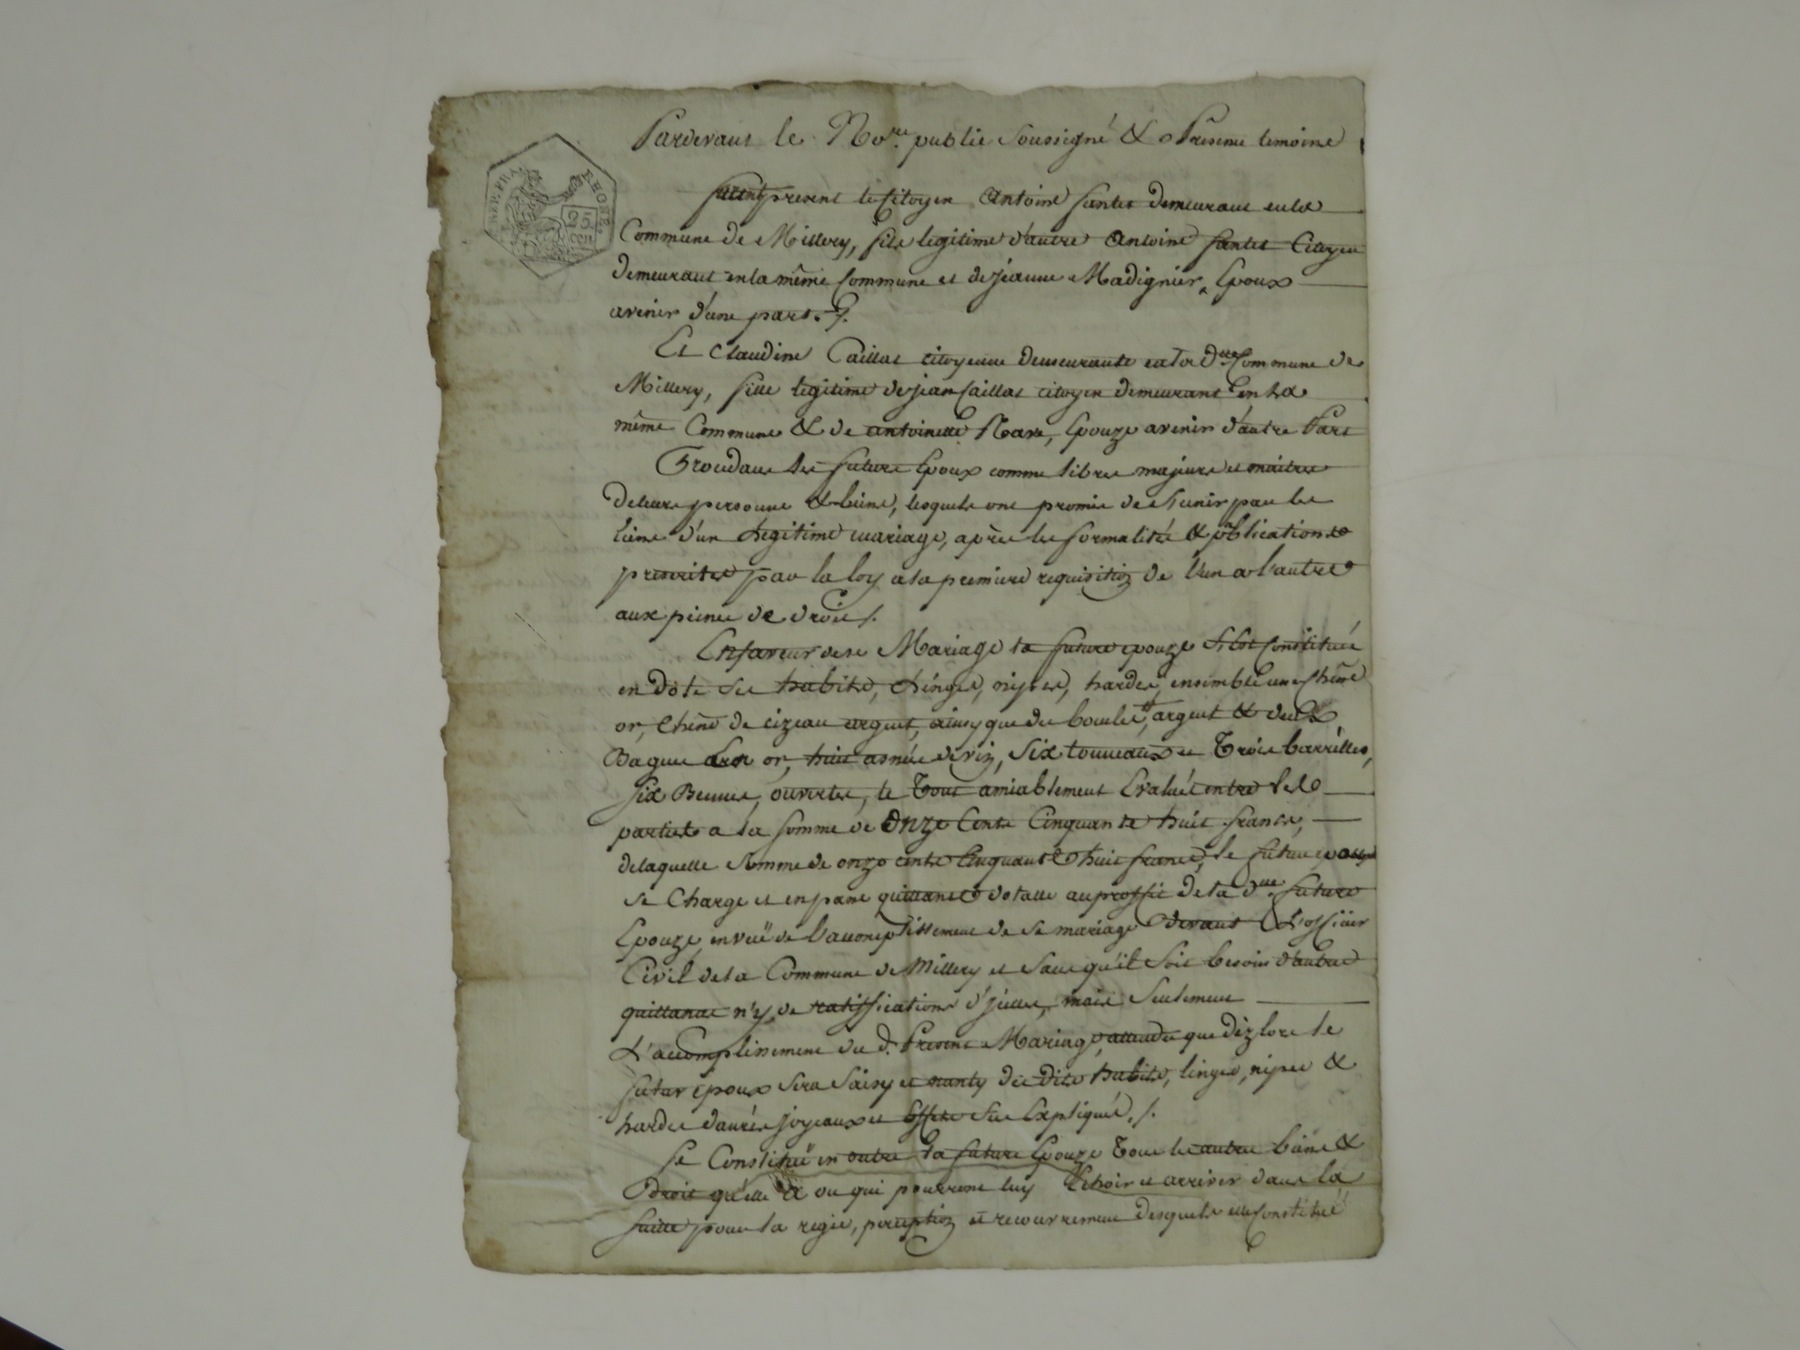 Pardevant le No.re public soussigné & Présens temoins
REP. FRA.
RHONE
25
cen
furent presens le Citoyen Antoine fantet demeurant en la
Commune de Millery, fils legitime d'autre Antoine fantet Citoyen
demeurant en la même Commune et de jeanne Madignier, Epoux
avenir d'une part. /.
Et Claudine Caillat citoyenne demeurante en la d.tte Commune de
Millery, fille legitime de jean Caillat citoyen demeurant en la
même Commune & de antoinette Nave, Epouze avenir d'autre Part
Procedans les futurs Epoux comme libres majeurs et maitres
de leurs personnes & biens, lesquels ont promis de s'unir par les
liens d'un legitime mariage, après les formalités & publications
prescrites par la loy a la premiere requisition de l'un a l'autre
aux peines de droit /.
En faveur de ce Mariage la future epouze s'est Constituée
en dote ses habits, linges, nipes, hardes, ensemble une Chene
or, Chene de cizeau argent, ainsy que des boucles, argent & deux
Bagues d'en or, huit asnées de vin, six tonneaux et trois barrilles,
six Bennes, ouvertes, le tout amiablement Evalué entre les
parties a la somme de onze Cents Cinquante huit francs,
de laquelle somme de onze cents Cinquante huit francs, le futur epoux
se Charge et en passe quittance dotalle au proffit de la d.tte future
Epouze, en vuë de l'accomplissement de ce mariage devant L'officier
Civil de la Commune de Millery et sans qu'il soit besoin d'autre
quittance n'y de ratiffications d'jcelle, mais seulement
L'accomplissement du d. Présent Mariage, attendu que dez lors le
futur epoux sera saisy et nanty des dits habits, linges, nipes &
hardes danrés joyeaux et effets sus Expliqués, /.
Se Constituë en outre la future Epouze tous les autres biens &
droits qu'elle a ou qui pourront luy Echoir et arriver dans la
suitte pour la regie, perception et recouvrement desquels elle Constituë